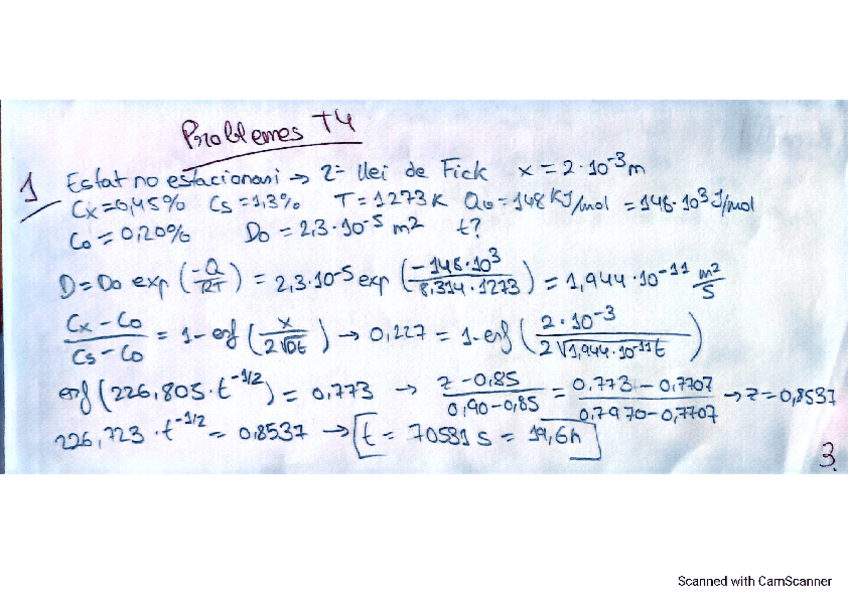 Problemes T4
1 Estat no estacionari → 2ª llei de Fick x = 2·10⁻³ m
Cx = 0,45% Cs = 1,3% T = 1273 K Q = 148 KJ/mol = 148·10³ J/mol
C₀ = 0,20% D₀ = 2,3·10⁻⁵ m² t?
D = D₀ exp (-Q/RT) = 2,3·10⁻⁵ exp (-148·10³/8,314·1273) = 1,944·10⁻¹¹ m²/s
Cx - C₀/Cs - C₀ = 1 - erf (x/2√Dt) → 0,227 = 1 - erf (2·10⁻³/2√1,944·10⁻¹¹t)
erf (226,805·t⁻¹/²) = 0,773 → z - 0,85/0,90 - 0,85 = 0,773 - 0,7707/0,7970 - 0,7707 → z = 0,8537
226,723·t⁻¹/² = 0,8537 → t = 70531 s = 19,6 h
3.
Scanned with CamScanner